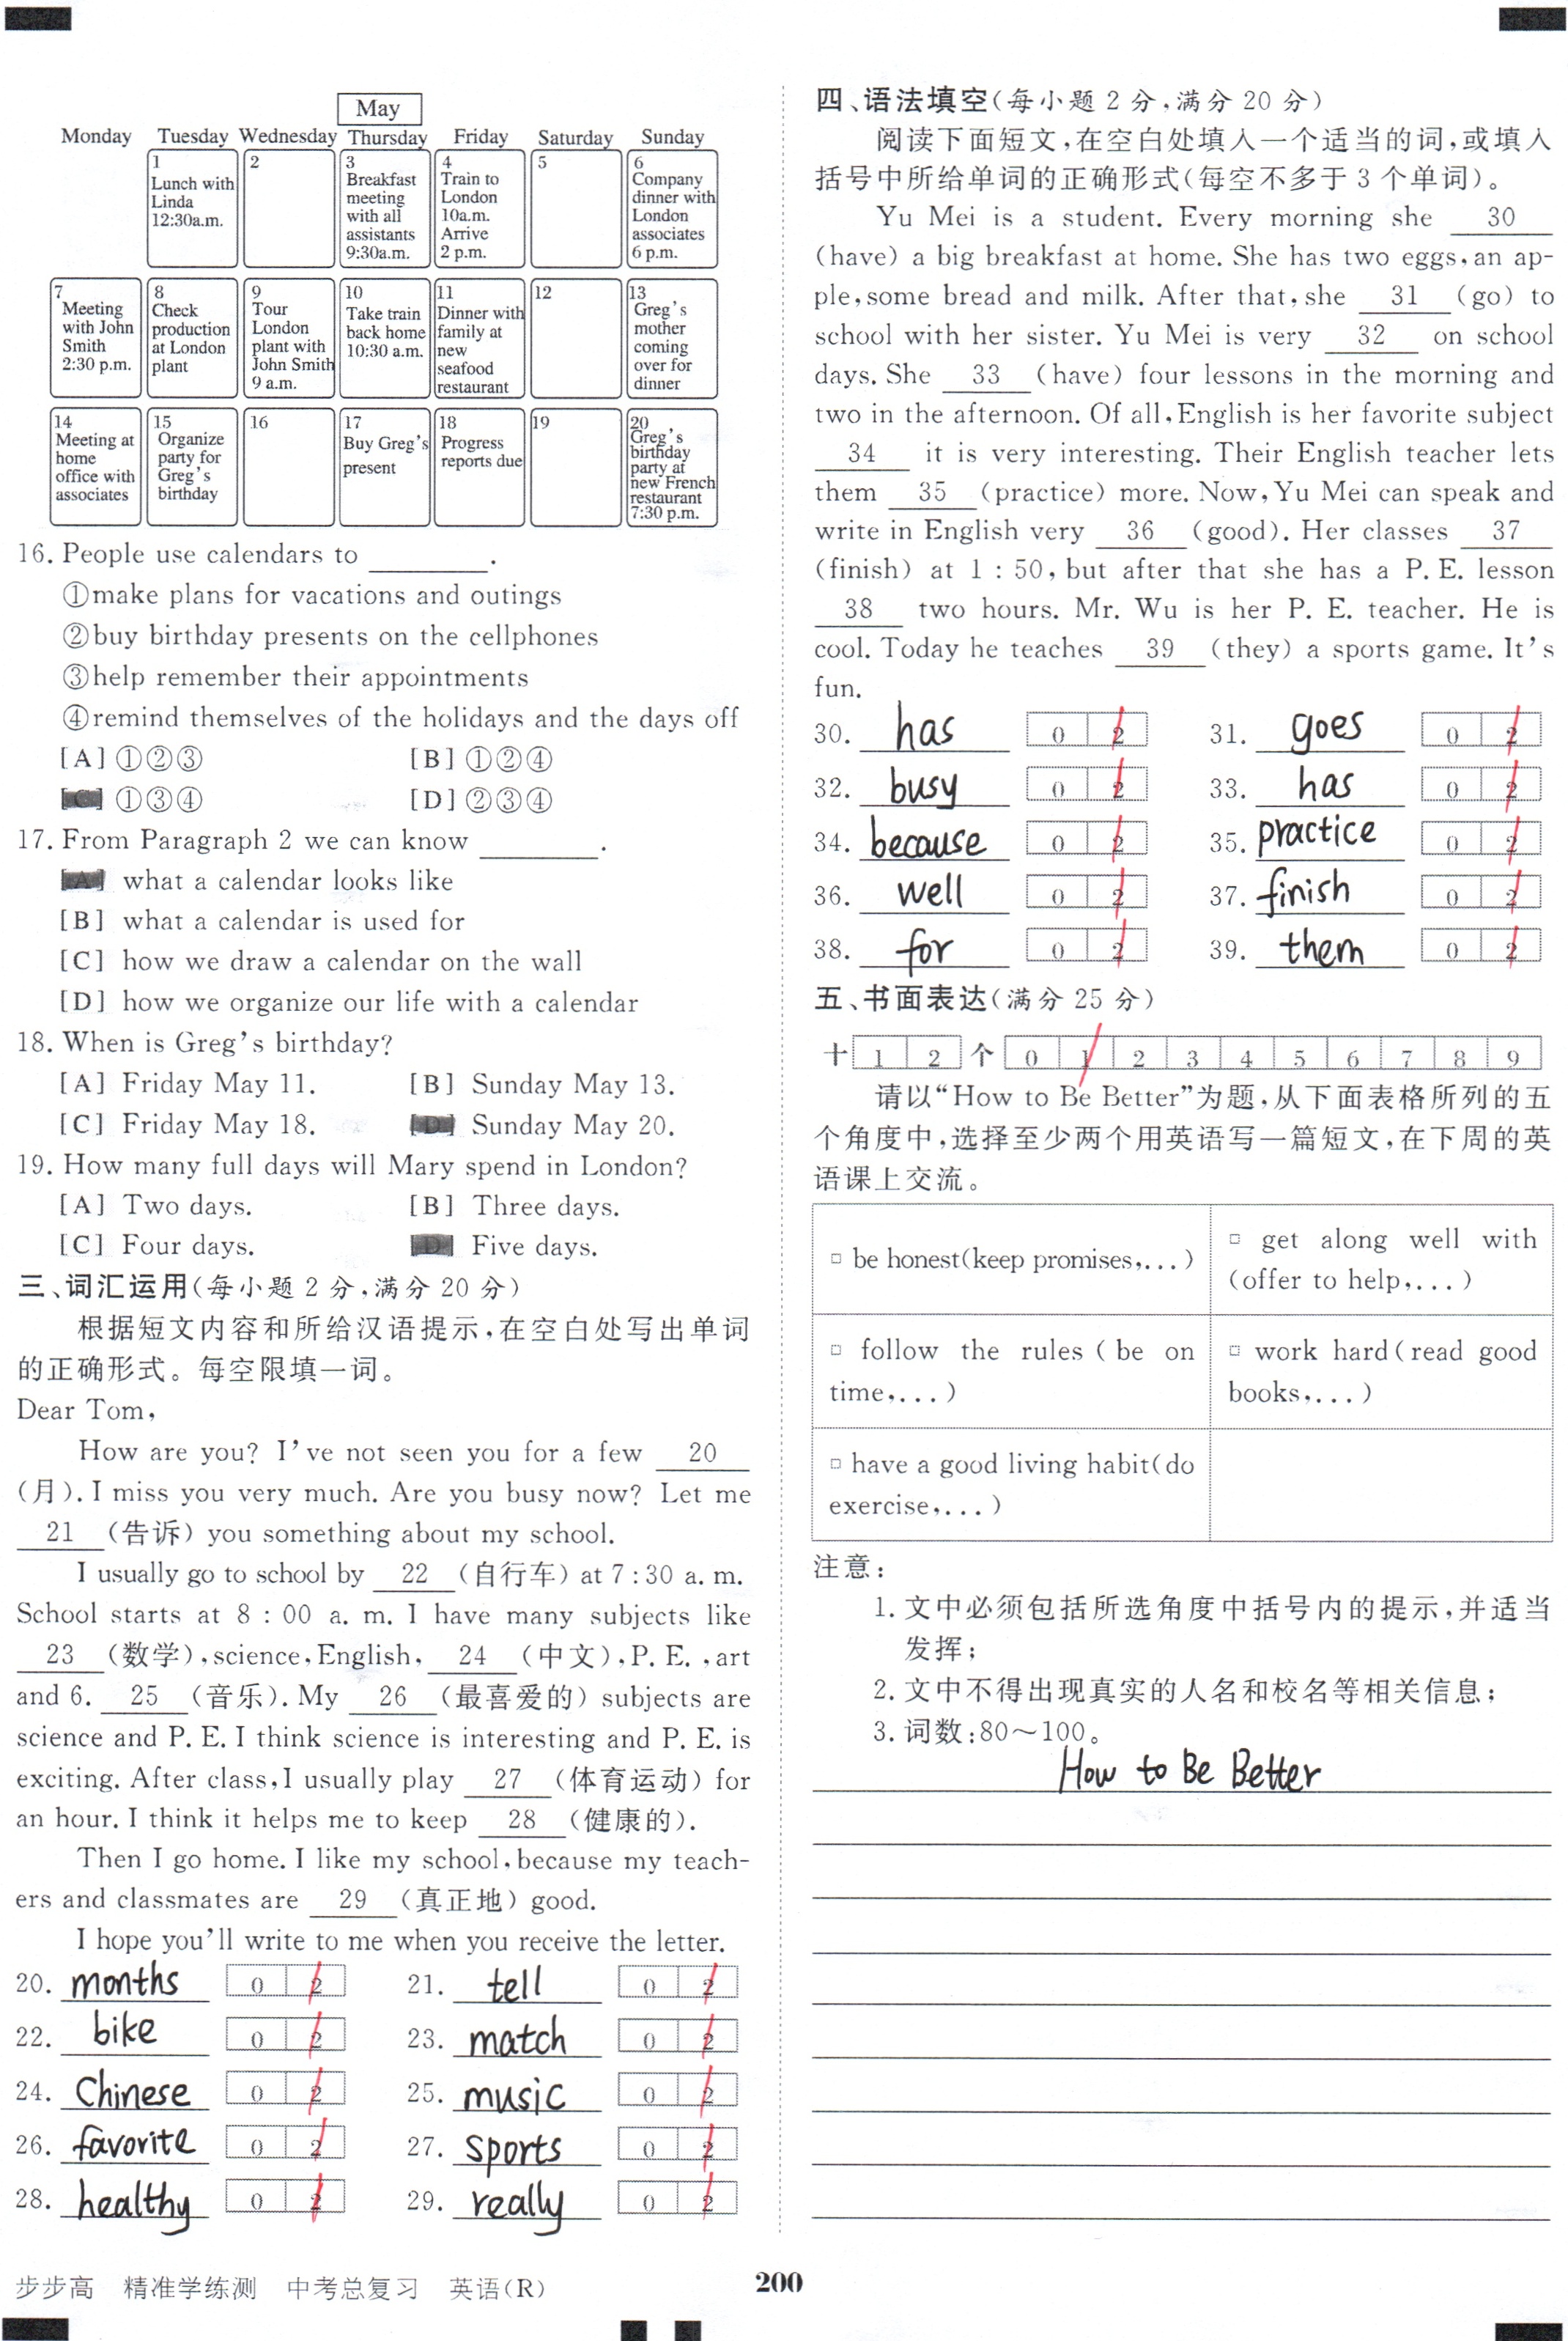 May
Monday Tuesday Wednesday Thursday Friday Saturday Sunday
1 Lunch with Linda 12:30a.m.
2
3 Breakfast meeting with all assistants 9:30a.m.
4 Train to London 10a.m. Arrive 2 p.m.
5
6 Company dinner with London associates 6 p.m.
7 Meeting with John Smith 2:30 p.m.
8 Check production at London plant
9 Tour London plant with John Smith 9 a.m.
10 Take train back home 10:30 a.m.
11 Dinner with family at new seafood restaurant
12
13 Greg's mother coming over for dinner
14 Meeting at home office with associates
15 Organize party for Greg's birthday
16
17 Buy Greg's present
18 Progress reports due
19
20 Greg's birthday party at new French restaurant 7:30 p.m.
16. People use calendars to ________.
①make plans for vacations and outings
②buy birthday presents on the cellphones
③help remember their appointments
④remind themselves of the holidays and the days off
[A] ①②③ [B] ①②④
[C] ①③④ [D] ②③④
17. From Paragraph 2 we can know ________.
[A] what a calendar looks like
[B] what a calendar is used for
[C] how we draw a calendar on the wall
[D] how we organize our life with a calendar
18. When is Greg's birthday?
[A] Friday May 11. [B] Sunday May 13.
[C] Friday May 18. [D] Sunday May 20.
19. How many full days will Mary spend in London?
[A] Two days. [B] Three days.
[C] Four days. [D] Five days.
三、词汇运用(每小题 2 分,满分 20 分)
根据短文内容和所给汉语提示,在空白处写出单词
的正确形式。每空限填一词。
Dear Tom,
How are you? I've not seen you for a few 20
(月). I miss you very much. Are you busy now? Let me
21 (告诉) you something about my school.
I usually go to school by 22 (自行车) at 7:30 a. m.
School starts at 8 : 00 a. m. I have many subjects like
23 (数学),science,English, 24 (中文),P. E. ,art
and 6. 25 (音乐). My 26 (最喜爱的) subjects are
science and P. E. I think science is interesting and P. E. is
exciting. After class,I usually play 27 (体育运动) for
an hour. I think it helps me to keep 28 (健康的).
Then I go home. I like my school,because my teach-
ers and classmates are 29 (真正地) good.
I hope you'll write to me when you receive the letter.
20. months 0 2 21. tell 0 2
22. bike 0 2 23. match 0 2
24. Chinese 0 2 25. music 0 2
26. favorite 0 2 27. sports 0 2
28. healthy 0 2 29. really 0 2
四、语法填空(每小题 2 分,满分 20 分)
阅读下面短文,在空白处填入一个适当的词,或填入
括号中所给单词的正确形式(每空不多于 3 个单词)。
Yu Mei is a student. Every morning she 30
(have) a big breakfast at home. She has two eggs,an ap-
ple,some bread and milk. After that,she 31 (go) to
school with her sister. Yu Mei is very 32 on school
days. She 33 (have) four lessons in the morning and
two in the afternoon. Of all,English is her favorite subject
34 it is very interesting. Their English teacher lets
them 35 (practice) more. Now,Yu Mei can speak and
write in English very 36 (good). Her classes 37
(finish) at 1 : 50,but after that she has a P. E. lesson
38 two hours. Mr. Wu is her P. E. teacher. He is
cool. Today he teaches 39 (they) a sports game. It's
fun.
30. has 0 2 31. goes 0 2
32. busy 0 2 33. has 0 2
34. because 0 2 35. practice 0 2
36. well 0 2 37. finish 0 2
38. for 0 2 39. them 0 2
五、书面表达(满分 25 分)
十 1 2 个 0 1 2 3 4 5 6 7 8 9
请以“How to Be Better”为题,从下面表格所列的五
个角度中,选择至少两个用英语写一篇短文,在下周的英
语课上交流。
□ be honest(keep promises,...)
□ get along well with
(offer to help,...)
□ follow the rules (be on
time,...)
□ work hard(read good
books,...)
□ have a good living habit(do
exercise,...)
注意:
1. 文中必须包括所选角度中括号内的提示,并适当
发挥;
2. 文中不得出现真实的人名和校名等相关信息;
3. 词数:80～100。
How to Be Better
步步高 精准学练测 中考总复习 英语(R)
200